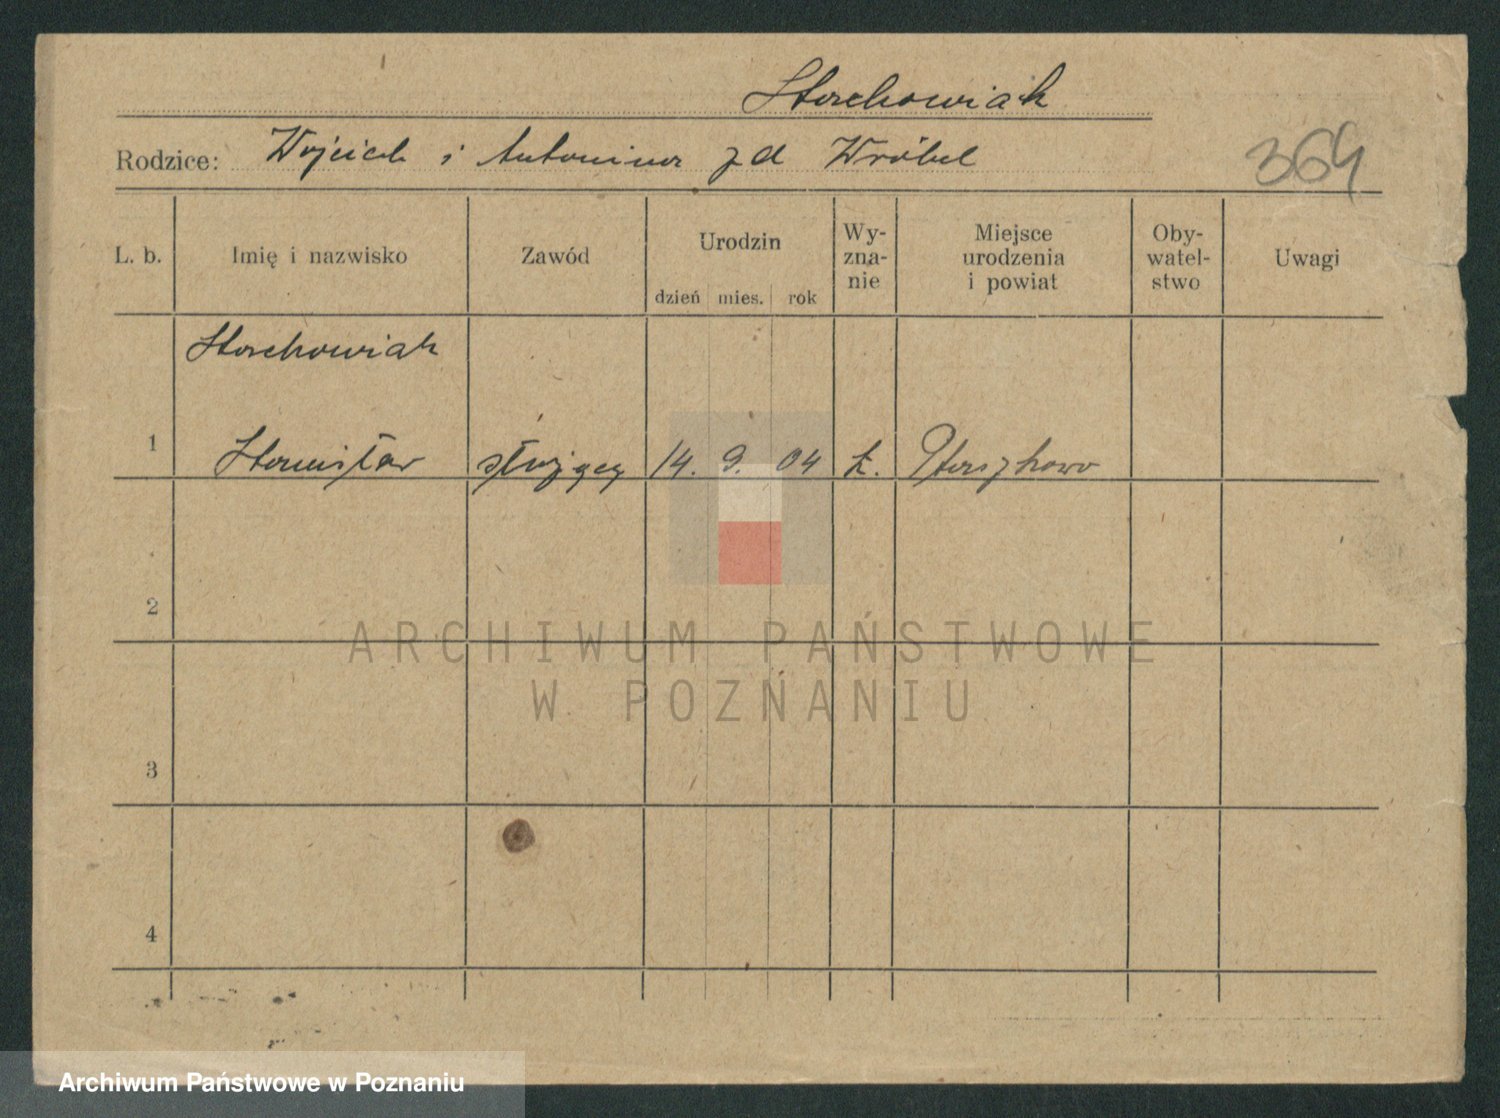 Storchowiak
Rodzice: Wojciech i Antonina z d Wróbel
364
L. b. Imię i nazwisko Zawód Urodzin dzień mies. rok Wy-zna-nie Miejsce urodzenia i powiat Oby-watel-stwo Uwagi
Storchowiak
1 Stanisław służący 14. 9. 04 k.
2
ARCHIWUM PAŃSTWOWE
W POZNANIU
3
4
Archiwum Państwowe w Poznaniu